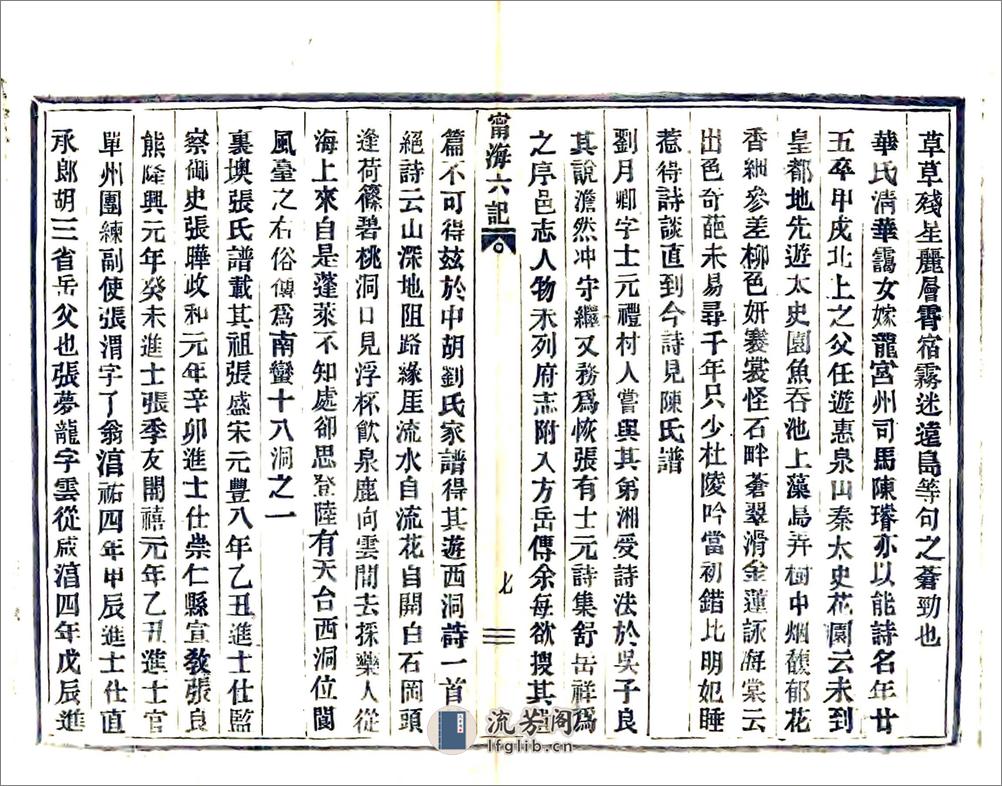 草草殘星麗層霄宿霧迷遠島等句之蒼勁也
華氏清華靄女嫁龍宮州司馬陳璿亦以能詩名年廿
五卒甲戌北上之父任遊惠泉山秦太史花園云未到
皇都地先遊太史園魚吞池上藻鳥弄樹中烟馥郁花
香細參差柳色妍褰裳怪石畔蒼翠滑金蓮詠海棠云
出色奇葩未易尋千年只少杜陵吟當初錯比明妃睡
惹得詩談直到今詩見陳氏譜
劉月卿字士元禮村人嘗與其弟湘受詩法於吳子良
其說澹然冲守繼又務爲恢張有士元詩集舒岳祥爲
之序邑志人物未列府志附入方岳傳余每欲搜其遺
甯海六記
七
篇不可得茲於中胡劉氏家譜得其遊西洞詩一首
絕詩云山深地阻路緣厓流水自流花自開白石岡頭
逢荷篠碧桃洞口見浮杯飲泉鹿向雲閒去採藥人從
海上來自是蓬萊不知處卻思登陸有天台西洞位閬
風臺之右俗傳爲南蠻十八洞之一
裏墺張氏譜載其祖張盛宋元豐八年乙丑進士仕監
察御史張曄政和元年辛卯進士仕崇仁縣宣敎張良
熊隆興元年癸未進士張季友開禧元年乙丑進士官
單州團練副使張渭字了翁淳祐四年甲辰進士仕直
承郎胡三省岳父也張夢龍字雲從咸淳四年戊辰進
流芳閣
lfglib.cn